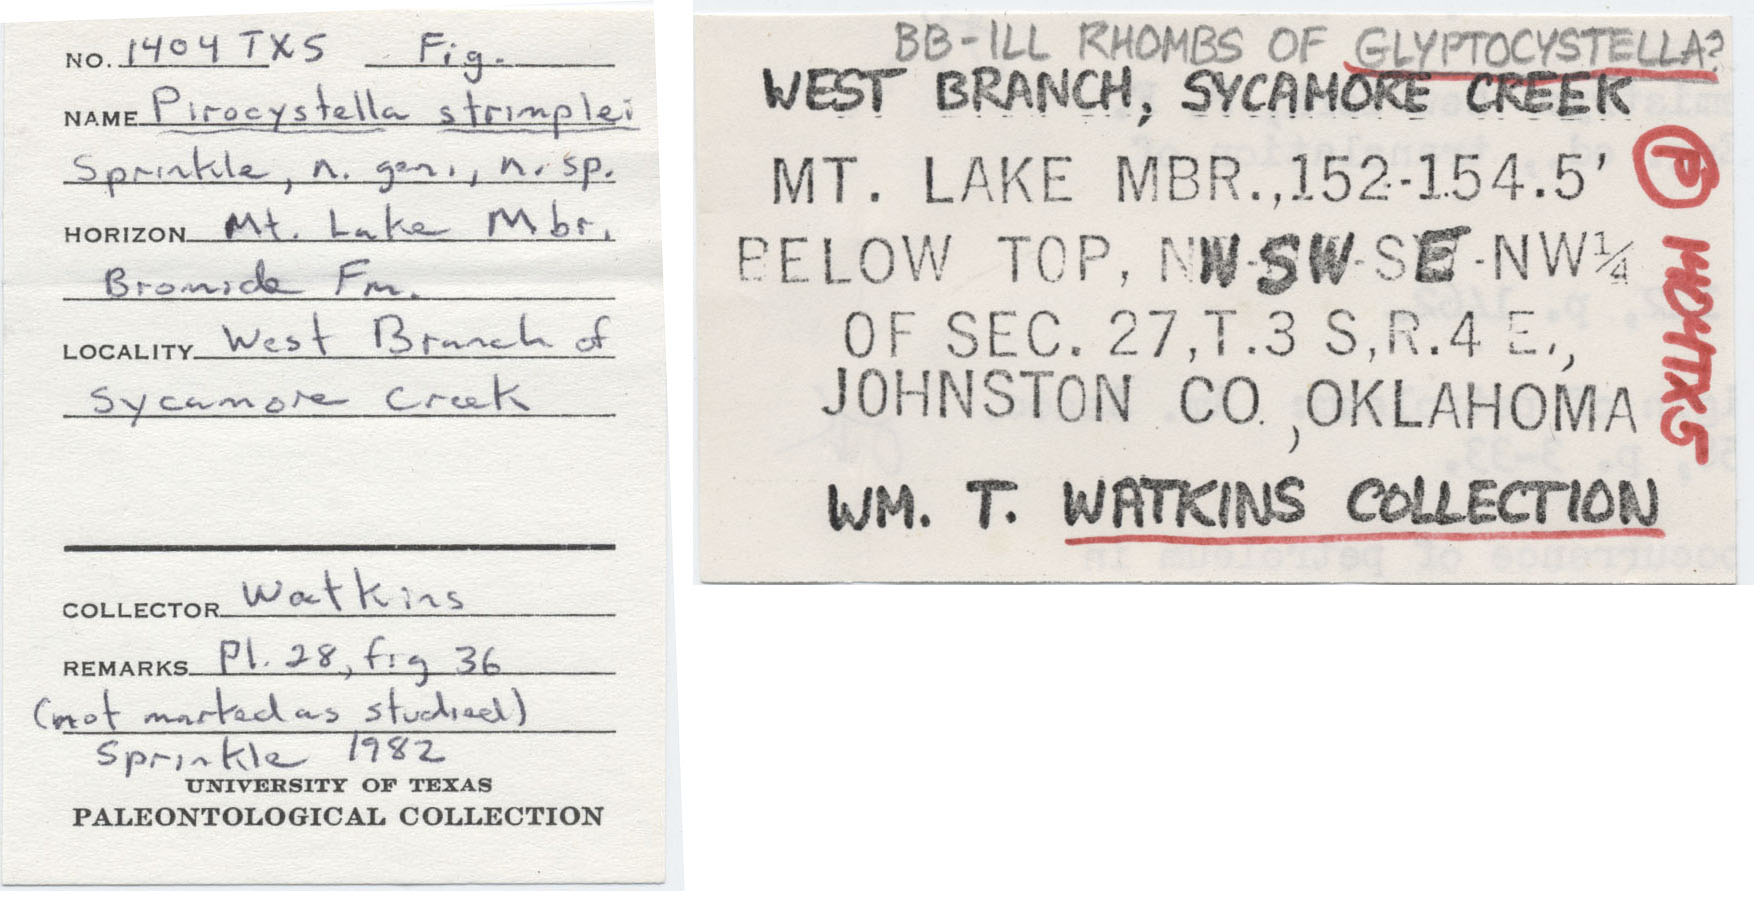 NO. 1404 TX5 Fig.
NAME Pirocystella strimplei
Sprinkle, n. gen., n. sp.
HORIZON Mt. Lake Mbr.
Bromide Fm.
LOCALITY West Branch of
Sycamore Creek
COLLECTOR Watkins
REMARKS Pl. 28, fig 36
(not marked as studied)
Sprinkle 1982
UNIVERSITY OF TEXAS
PALEONTOLOGICAL COLLECTION
BB-ILL RHOMBS OF GLYPTOCYSTELLA?
WEST BRANCH, SYCAMORE CREEK
MT. LAKE MBR.,152-154.5'
BELOW TOP, NW-SW-SE-NW¼
OF SEC. 27,T.3 S,R.4 E.,
JOHNSTON CO., OKLAHOMA
WM. T. WATKINS COLLECTION
P
1404TX5